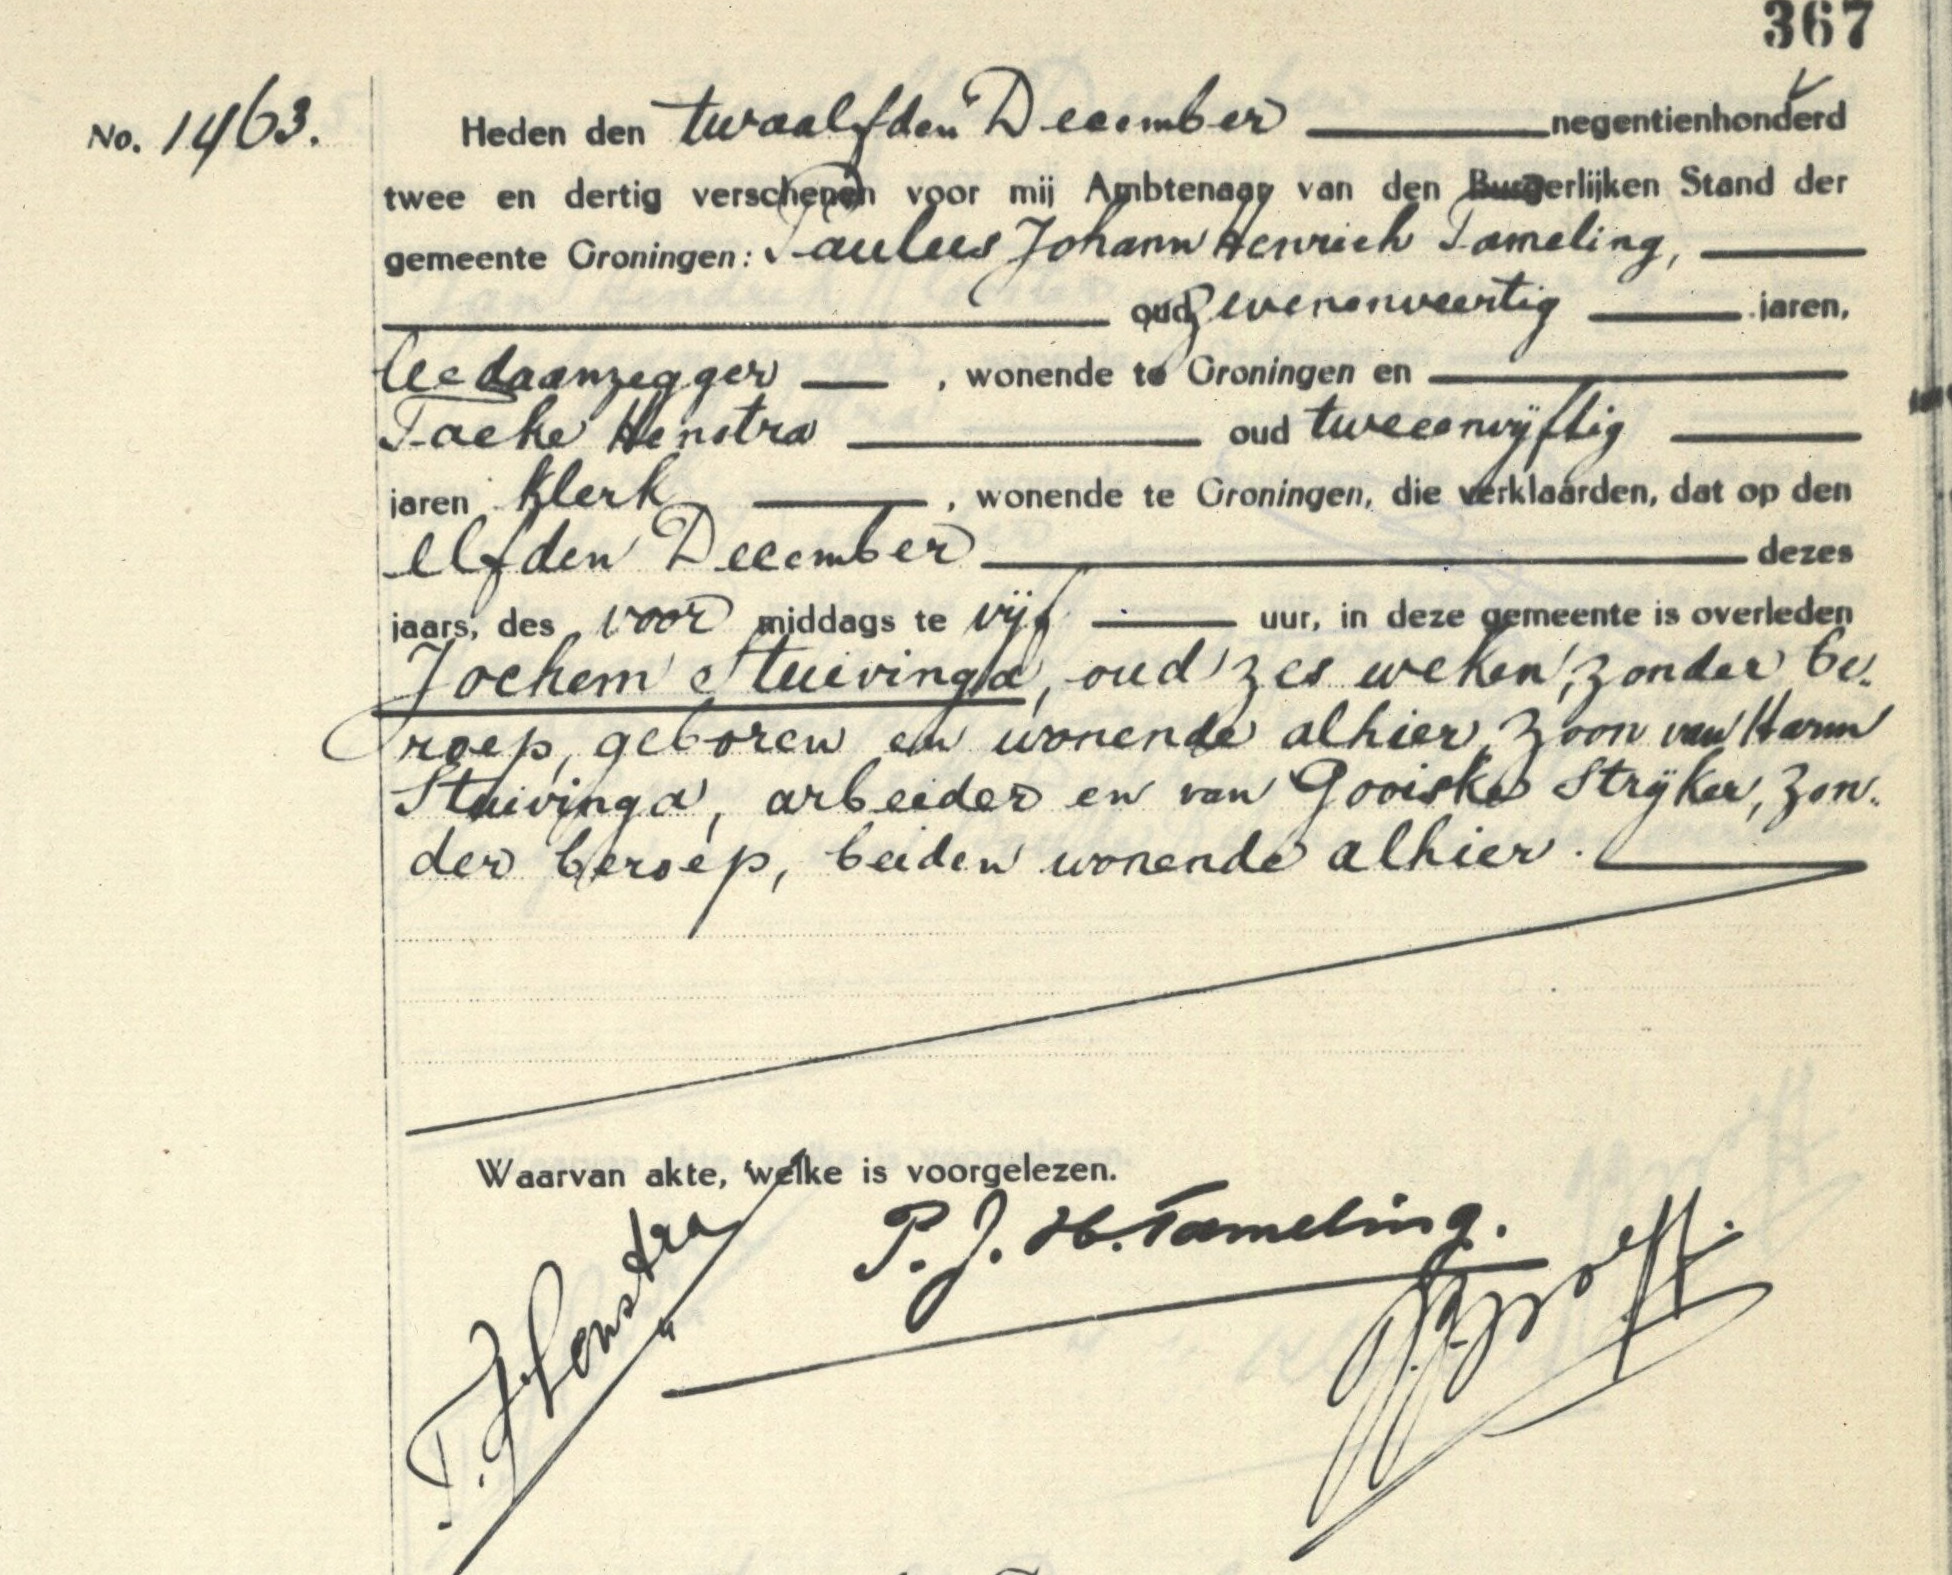 367
No. 1463.
Heden den twaalfden December negentienhonderd
twee en dertig verschenen voor mij Ambtenaar van den Burgerlijken Stand der
gemeente Groningen: Paulus Johann Henrich Tameling,
oud zevenenveertig jaren,
leedaanzegger, wonende te Groningen en
Taeke Henstra oud tweeenvijftig
jaren klerk, wonende te Groningen, die verklaarden, dat op den
elfden December dezes
jaars, des voor middags te vijf uur, in deze gemeente is overleden
Jochem Stuivinga, oud zes weken, zonder be-
roep, geboren en wonende alhier, zoon van Harm
Stuivinga, arbeider en van Gooiske Strijker, zon-
der beroep, beiden wonende alhier.
Waarvan akte, welke is voorgelezen.
P. J. H. Tameling.
T. Henstra